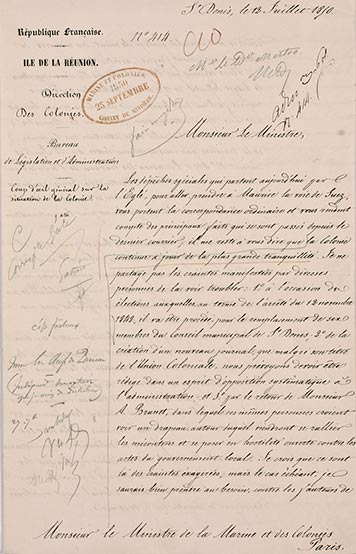 St. Denis, le 12 Juillet 1850.
République Française.
N° 414.
ILE DE LA RÉUNION.
Direction
Des Colonies.
MARINE ET COLONIES
25 SEPTEMBRE
CABINET DU MINISTRE
Bureau
de Législation et d'Administration
Coup d'œil général sur la
situation de la Colonie
Monsieur Le Ministre,
Les dépêches spéciales qui partent aujourd'hui par
l'Eglé, pour aller prendre à Maurice la voie de Suez,
vous portent la correspondance ordinaire et vous rendent
compte des principaux faits qui se sont passés depuis le
dernier courrier; il me reste à vous dire que la colonie
continue à jouir de la plus grande tranquillité. Je ne
partage pas les craintes manifestées par diverses
personnes de la voir troubler: 1° à l'occasion des
élections auxquelles, au terme de l'arrêté du 12 novembre
1848, il va être procédé, pour le remplacement de six
membres du Conseil municipal de St. Denis, 2° de la
création d'un nouveau journal, qui malgré son titre
de l'Union Coloniale, nous prévoyons devoir être
rédigé dans un esprit d'opposition systématique à
l'administration, et 3° par le retour de Monsieur
A. Brunet, dans lequel ces mêmes personnes croient
voir un drapeau autour duquel viendront se rallier
les mécontents et se poser en hostilité ouverte contre les
actes du gouvernement local. Je crois que ce sont
là des craintes exagérées, mais le cas échéant, je
saurais bien prendre au besoin, contre les fauteurs de
Monsieur le Ministre de la Marine et des Colonies
Paris.